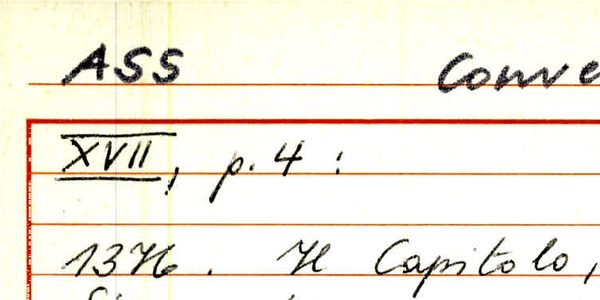 ASS Conve
XVII, p. 4 :
1376. Il Capitolo,